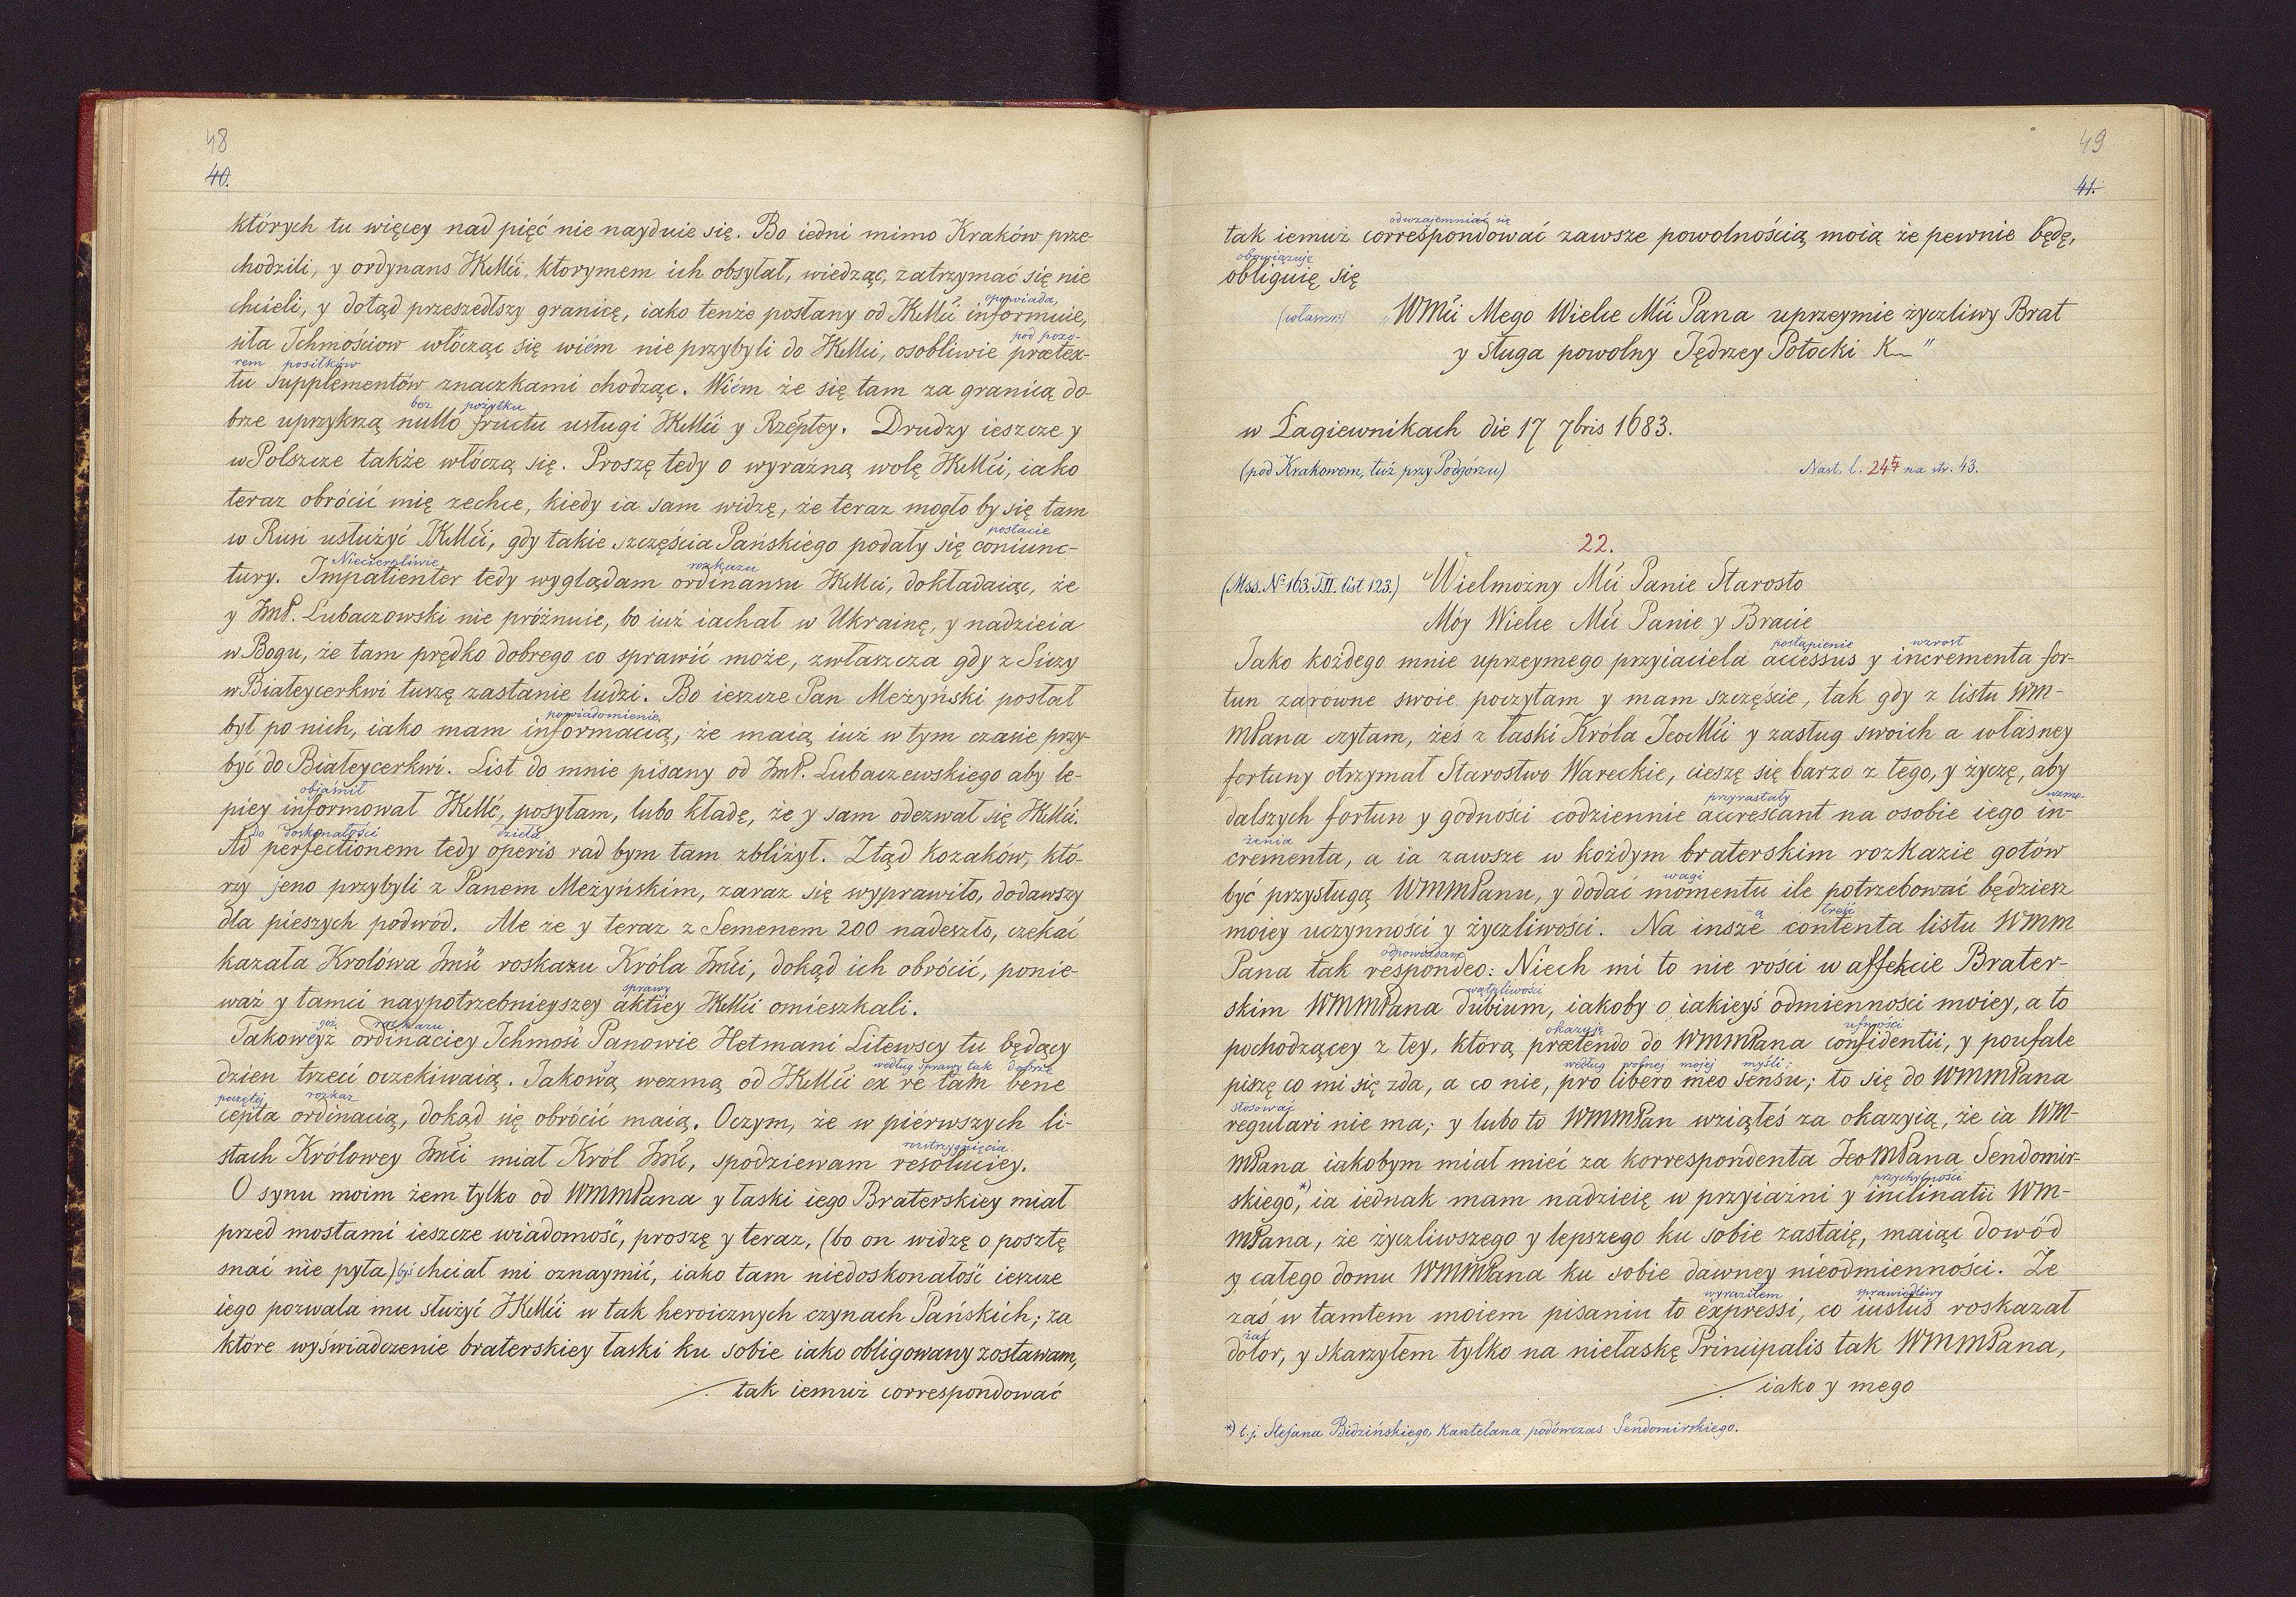 48
40.
których tu więcey nad pięć nie nayduie się. Bo iedni mimo Kraków prze-
chodzili, y ordynans JKMći, ktorymem ich obsyłał, wiedząc, zatrzymać się nie
opowiada,
chcieli, y dotąd przeszedłszy granicę, iako tenże posłany od JKMći informuie,
pod pozo-
siła Ichmościow włócząc się wiém nie przybyli do JKMci, osobliwie prætex-
rem posiłków
tu supplementów znaczkami chodząc. Wiém że się tam za granicą do-
bez pożytku
brze uprzykrzą nullo fructu usługi JKMći y Rzeptey. Drudzy ieszcze y
w Polszcze także włóczą się. Proszę tedy o wyraźną wolę JKMći, iako
teraz obrócić mię zechce, kiedy ia sam widzę, że teraz mogło by się tam
postacie
w Rusi usłużyć JKMći, gdy takie szczęścia Pańskiego podały się coniunc-
Niecierpliwie rozkazu
tury. Impatienter tedy wyglądam ordinansu JKMci, dokładaiąc, że
y JmP. Lubaczowski nie próżnuie, bo iuż iachał w Ukrainę, y nadzieia
w Bogu, że tam prędko dobrego co sprawić może, zwłaszcza gdy z Siczy
w Białeycerkwi tuszę zastanie ludzi. Bo ieszcze Pan Meżyński posłał
powiadomienie
był po nich, iako mam informacią, że maią iuż w tym czasie przy-
być do Białeycerkwi. List do mnie pisany od JmP. Lubaczewskiego aby le-
objaśnił
piey informował JKMć, posyłam, lubo kładę, że y sam odezwał się JKMći.
do doskonałości dzieła
Ad perfectionem tedy operis rad bym tam zbliżył. Ztąd kozaków, któ-
rzy jeno przybyli z Panem Meżyńskim, zaraz się wyprawiło, dodawszy
dla pieszych podwód. Ale że y teraz z Semenem 200 nadeszło, czekać
kazała Krolówa Jmći roskazu Króla Jmći, dokąd ich obrócić, ponie-
sprawy
waż y tamci naypotrzebnieyszey aktiey JKMći omieszkali.
-goż rozkazu
Takoweyż ordinaciey Ichmość Panowie Hetmani Litewscy tu będący
według sprawy tak dobrze
dzien trzeci oczekiwaią. Jakową wezmą od JKMći ex re tam bene
poczętej rozkaz
cepta ordinacią, dokąd się obrócić maią. Oczym, że w piérwszych li-
rozstrzygnięcia
stach Królowey Jmći miał Król Jmć, spodziewam resoluciey.
O synu moim żem tylko od WMMPana y łaski iego Braterskiey miał
przed mostami ieszcze wiadomość, proszę y teraz, (bo on widzę o posztę
snać nie pyta) byś chciał mi oznaymić, iako tam niedoskonałość ieszcze
iego pozwala mu służyć JKMći w tak heroicznych czynach Pańskich; za
które wyświadczenie braterskiey łaski ku sobie iako obligowany zostawam,
tak iemuż correspondować
49
41.
odwzajemniać się
tak iemuż correspondować zawsze powolnością moią że pewnie będę,
obowiązuję
obliguię się
(własn:) „WMći Mego Wielce Mći Pana uprzeymie życzliwy Brat
y sługa powolny Jędrzey Potocki K__"
w Łagiewnikach die 17 7bris 1683.
(pod Krakowem, tuż przy Podgórzu) Nast. l. 24ty na str. 43.
22.
(Mss. No 163. T.II. list 123.) „Wielmożny Mći Panie Starosto
Móy Wielce Mći Panie y Bracie
postąpienie wzrost
Jako każdego mnie uprzeymego przyiaciela accessus y incrementa for-
tun zarówne swoie poczytam y mam szczęście, tak gdy z listu WM-
MPana czytam, żeś z łaski Króla JeoMći y zasług swoich a własney
fortuny otrzymał Starostwo Wareckie, cieszę się barzo z tego, y życzę, aby
przyrastały wzmo-
dalszych fortun y godności codziennie accrescant na osobie iego in-
żenia
crementa, a ia zawsze w każdym braterskim rozkazie gotów
wagi
być przysługą WMMPanu, y dodać momentu ile potrzebować będziesz
-ą treść
moiey uczynności y życzliwości. Na insze contenta listu WMM
odpowiadam
Pana tak respondeo: Niech mi to nie rości w affekcie Brater-
wątpliwości
skim WMMPana dubium, iakoby o iakieyś odmienności moiey, a to
okazuję ufności
pochodzącey z tey, którą prætendo do WMMPana confidentii, y poufale
według wolnej mojej myśli;
piszę co mi się zda, a co nie, pro libero meo sensu; to się do WMMPana
stosować
regulari nie ma; y lubo to WMMPan wziąłeś za okazyią, że ia WM-
MPana iakobym miał mieć za korrespondenta JeoMPana Sendomir-
przychylności
skiego,*) ia iednak mam nadzieię w przyiaźni y inclinatii WM-
MPana, że życzliwszego y lepszego ku sobie zastaię, maiąc dowód
y całego domu WMMPana ku sobie dawney nieodmienności. Że
wyraziłem sprawiedliwy
zaś w tamtem moiem pisaniu to expressi, co iustus roskazał
żal
dolor, y skarzyłem tylko na niełaskę Principalis tak WMMPana,
iako y mego
*) t.j. Stefana Bidzińskiego, Kasztelana podówczas Sendomirskiego.